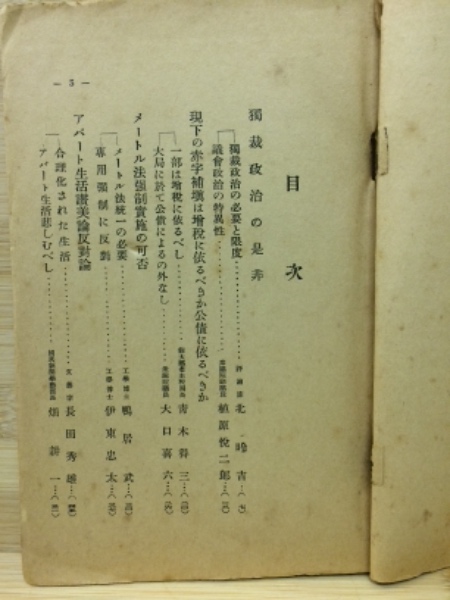 目次
獨裁政治の是非
獨裁政治の必要と限度 北昤吉
議會政治の特異性 衆議院議員 植原悦二郎
現下の赤字補塡は增稅に依るべきか公債に依るべきか
一部は增稅に依るべし 青木得三
大局に於て公債によるの外なし 衆議院議員 大口喜六
メートル法强制實施の可否
メートル法統一の必要 工學博士 鴨居武
專用强制に反對 工學博士 伊東忠太
アパート生活讃美論反對論
合理化された生活 文藝家 長田秀雄
アパート生活悲しむべし 畑耕一
— 5 —